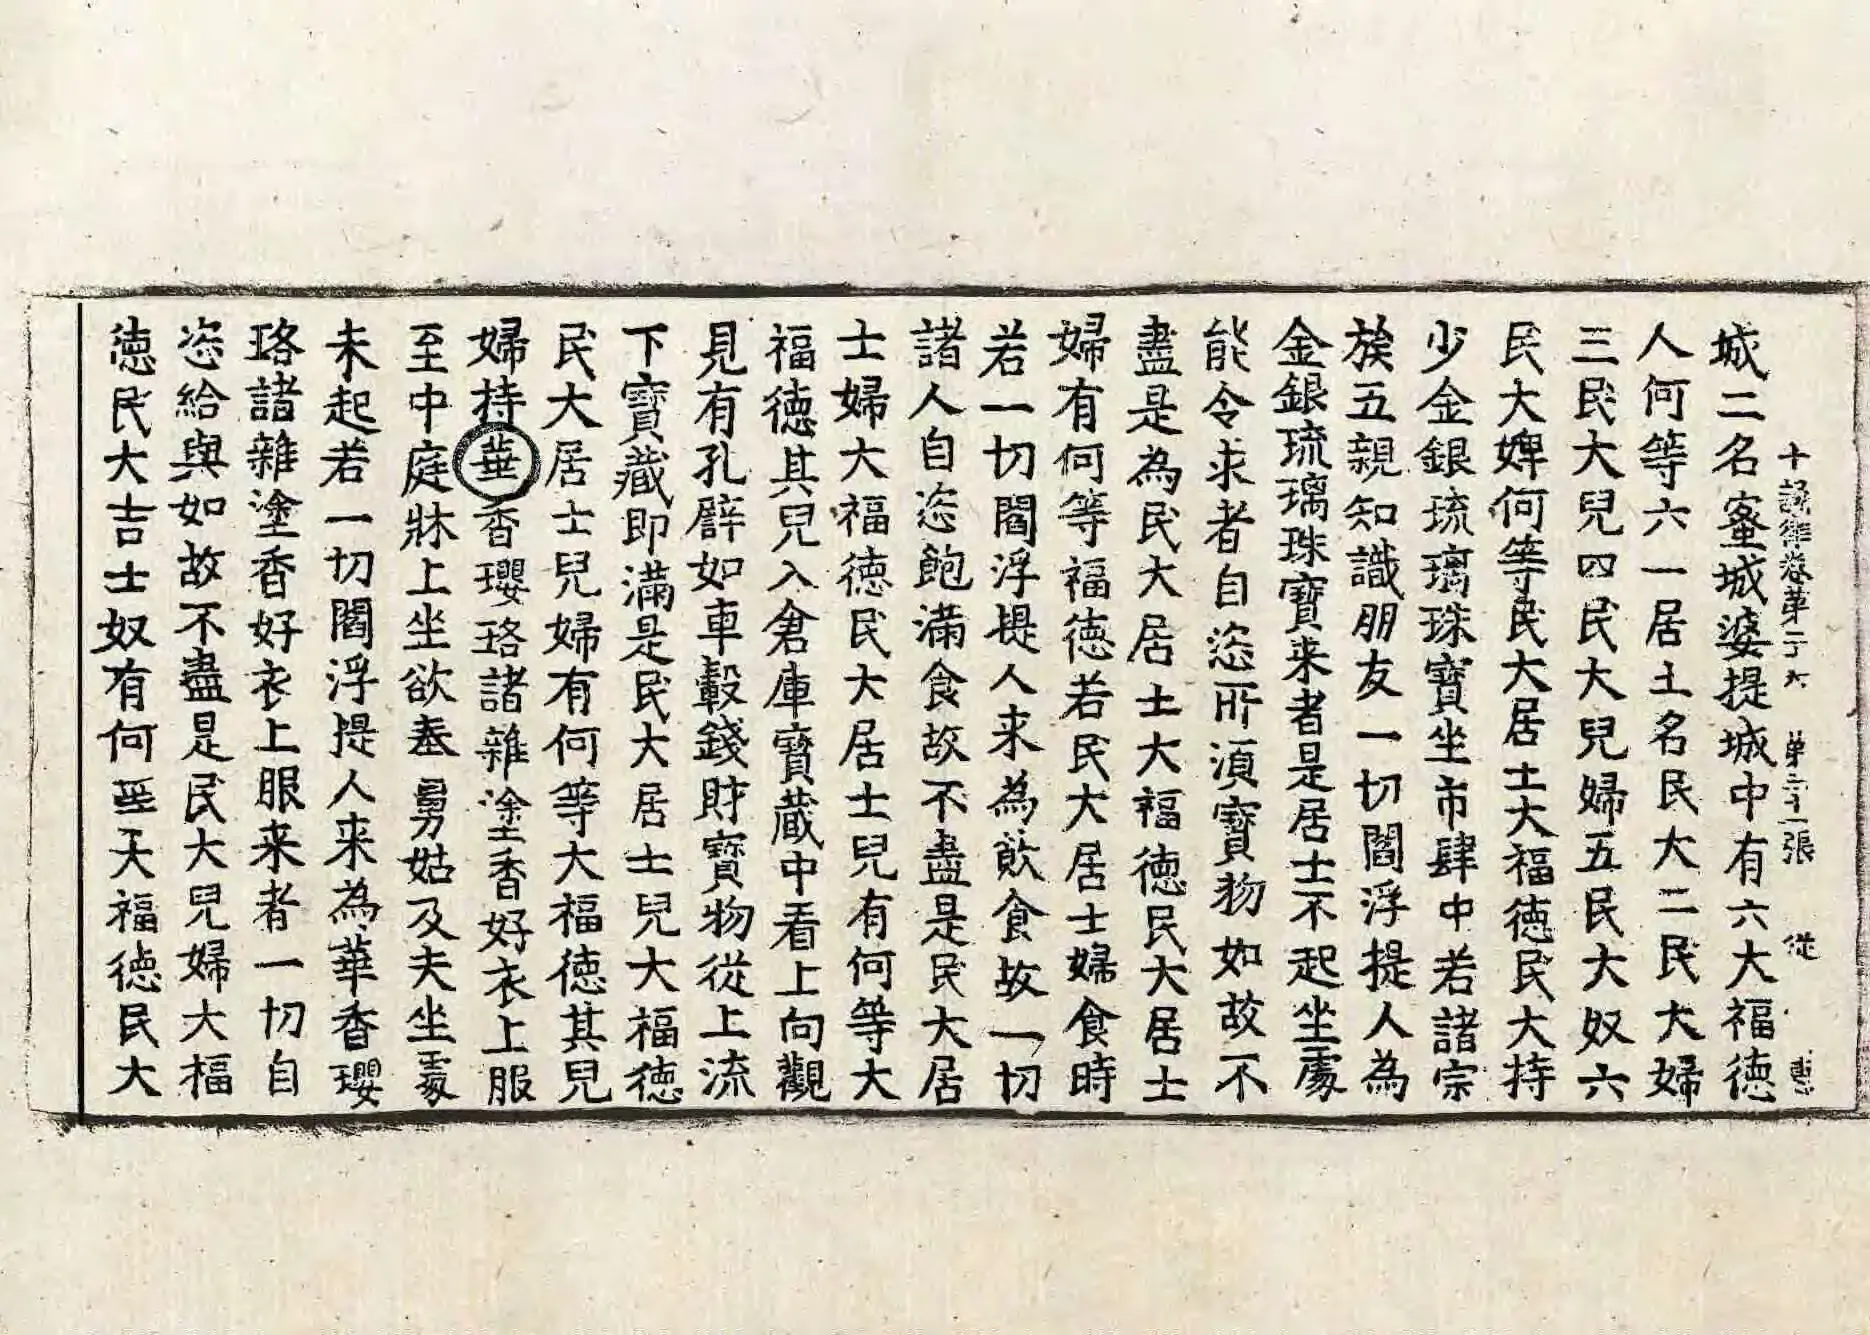 十誦律卷第二十六 第三十一張 從
城二名蜜城婆提城中有六大福德
人何等六一居士名民大二民大婦
三民大兒四民大兒婦五民大奴六
民大婢何等民大居士大福德民大持
少金銀琉璃珠寶坐市肆中若諸宗
族五親知識朋友一切閻浮提人為
金銀琉璃珠寶来者是居士不起坐處
能令求者自恣所須寶物如故不
盡是為民大居士大福德民大居士
婦有何等福德若民大居士婦食時
若一切閻浮提人来為飲食故一切
諸人自恣飽滿食故不盡是民大居
士婦大福德民大居士兒有何等大
福德其兒入倉庫寶藏中看上向觀
見有孔譬如車轂錢財寶物從上流
下寶藏即滿是民大居士兒大福德
民大居士兒婦有何等大福德其兒
婦持華香瓔珞諸雜塗香好衣上服
至中庭牀上坐欲奉舅姑及夫坐處
未起若一切閻浮提人来為華香瓔
珞諸雜塗香好衣上服来者一切自
恣給與如故不盡是民大兒婦大福
德民大吉士奴有何等大福德民大